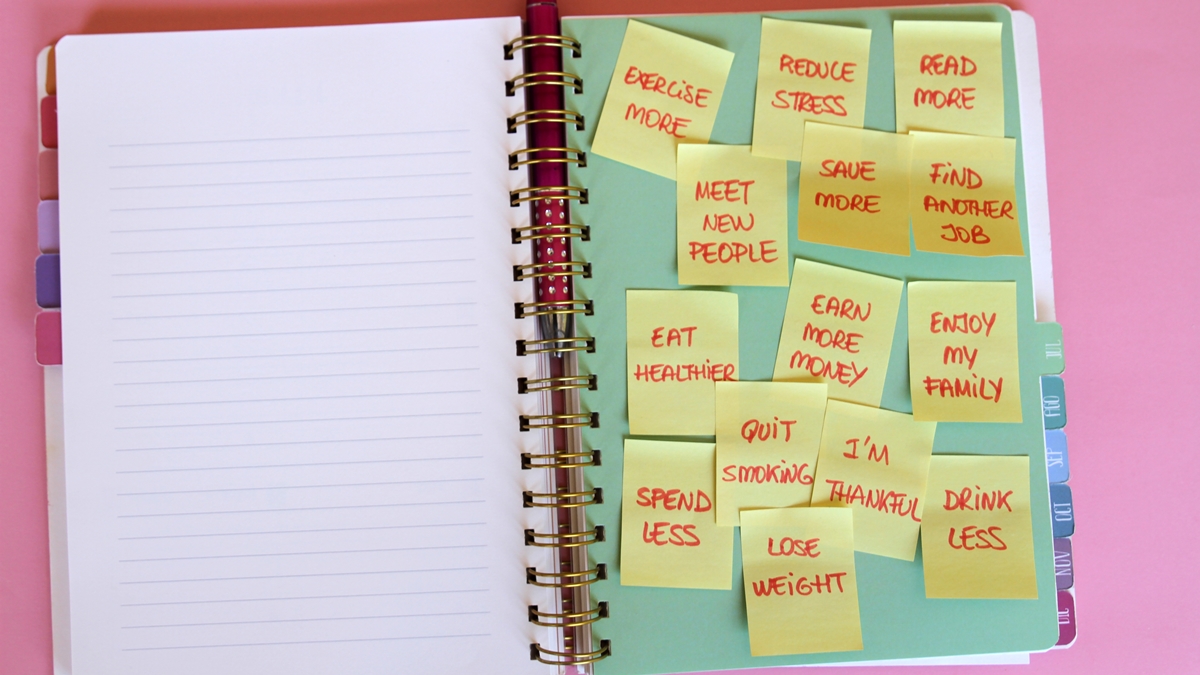 EXERCISE
MORE
REDUCE
STRESS
READ
MORE
MEET
NEW
PEOPLE
SAVE
MORE
FIND
ANOTHER
JOB
EAT
HEALTHIER
EARN
MORE
MONEY
ENJOY
MY
FAMILY
QUIT
SMOKING
I'M
THANKFUL
SPEND
LESS
DRINK
LESS
LOSE
WEIGHT
JUL
AGO
SEP
OCT
NOV
DIC